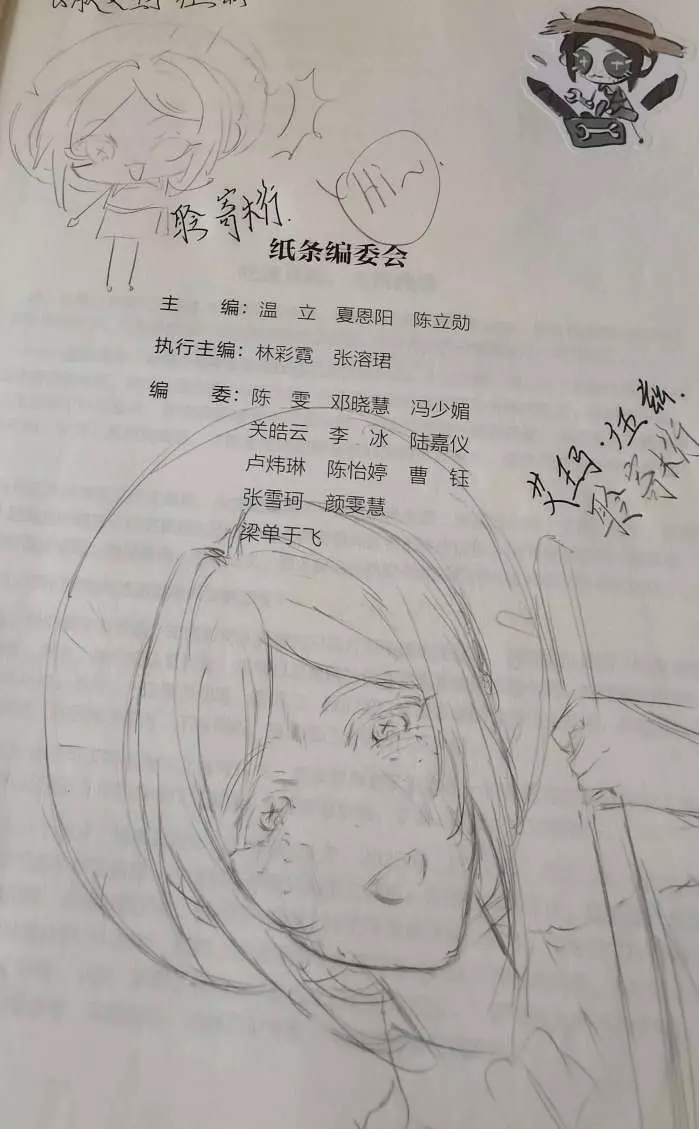 Hi~
纸条编委会
主 编：温 立 夏恩阳 陈立勋
执行主编：林彩霓 张溶珺
编 委：陈 雯 邓晓慧 冯少媚
关皓云 李 冰 陆嘉仪
卢炜琳 陈怡婷 曹 钰
张雪珂 颜雯慧
梁单于飞
艾玛·伍兹.